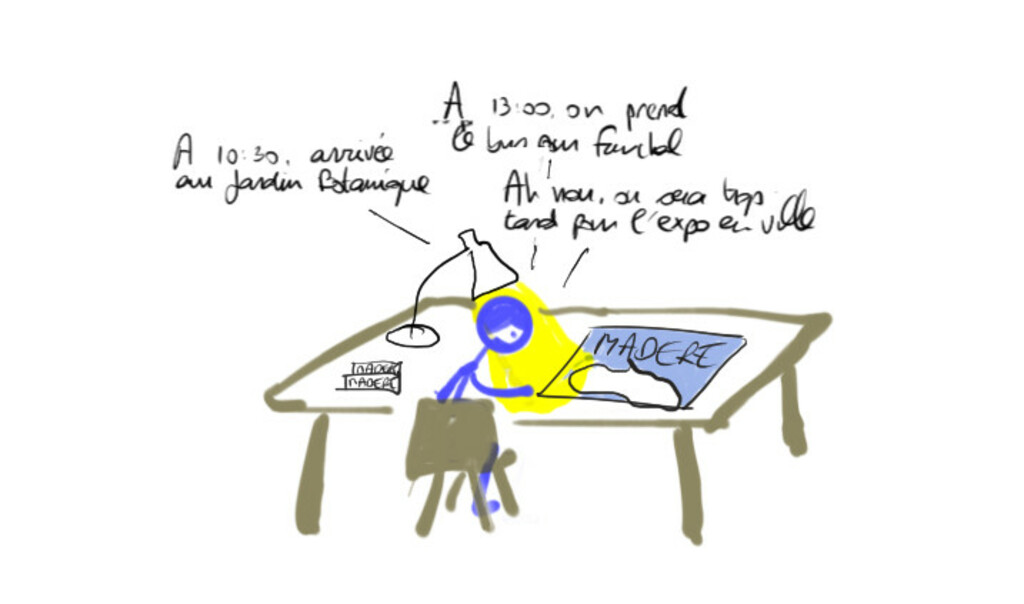 A 10:30, arrivée
au Jardin Botanique
A 13:00, on prend
le bus pour Funchal
Ah non, on sera trop
tard pour l'expo en ville
MADERE
MADERE
MADERE